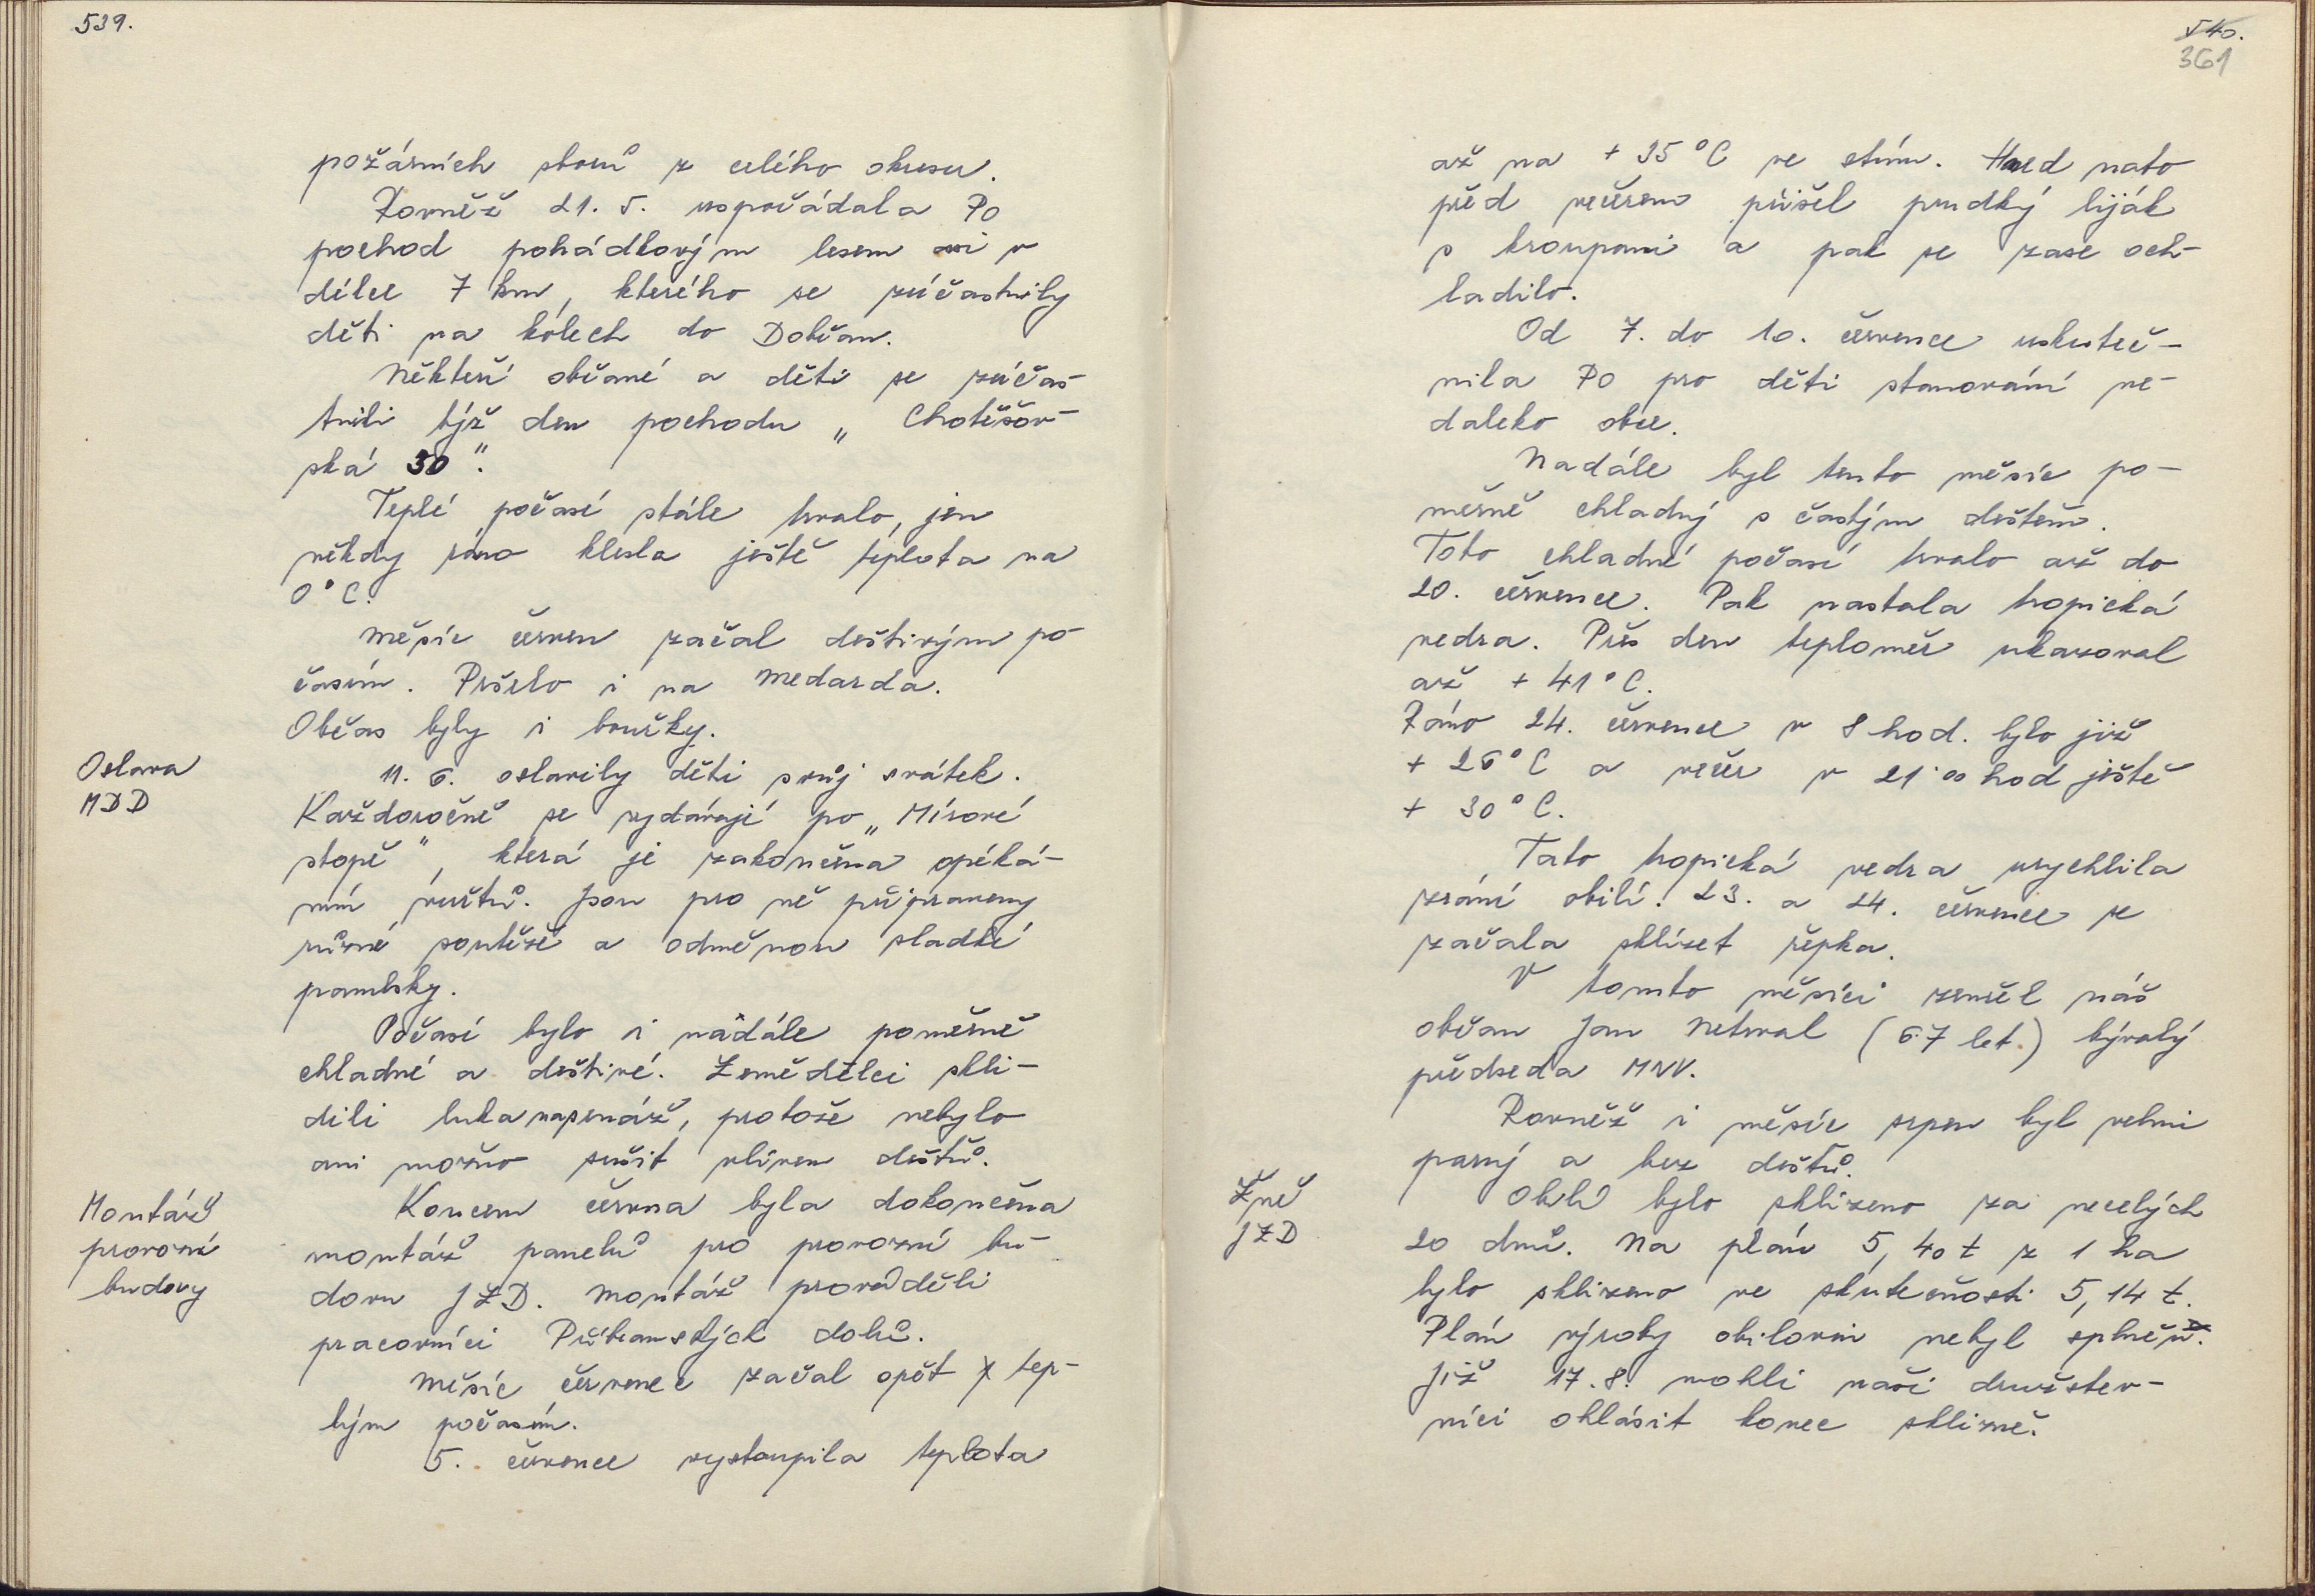 539.
požárních sborů z celého okresu.
Rovněž 21. 5. uspořádala PO
pochod pohádkovým lesem asi v
délce 7 km, kterého se zúčastnily
děti na kolech do Dobřan.
Někteří občané a děti se zúčas-
tnili týž den pochodu „ Chotěšov-
ská 30".
Teplé počasí stále trvalo, jen
někdy ráno klesla ještě teplota na
0°C.
Měsíc červen začal deštivým po-
časím. Pršelo i na Medarda.
Občas byly i bouřky.
Oslava
MDD
11. 6. oslavily děti svůj svátek.
Každoročně se vydávají po „ Mírové
stopě", která je zakončena opéká-
ním vuřtů. Jsou pro ně připraveny
různé soutěže a odměnou sladké
pamlsky.
Počasí bylo i nadále poměrně
chladné a deštivé. Zemědělci skli-
dili luka na senáž, protože nebylo
ani možno sušit vlivem dešťů.
Montáž
provozní
budovy
Koncem června byla dokončena
montáž panelů pro provozní bu-
dovu JZD. Montáž prováděli
pracovníci Příbramských dolů.
Měsíc červenec začal opět s tep-
lým počasím.
5. července vystoupila teplota
540.
361
až na + 35°C ve stínu. Hned nato
před večerem přišel prudký liják
s kroupami a pak se zase och-
ladilo.
Od 7. do 10. července uskuteč-
nila PO pro děti stanování ne-
daleko obce.
Nadále byl tento měsíc po-
měrně chladný s častým deštěm.
Toto chladné počasí trvalo až do
20. července. Pak nastala tropická
vedra. Přes den teploměr ukazoval
až + 41°C.
Ráno 24. července v 8 hod. bylo již
+ 26°C a večer v 21·00 hod ještě
+ 30°C.
Tato tropická vedra urychlila
zrání obilí. 23. a 24. července se
začala sklízet řepka.
V tomto měsíci zemřel náš
občan Jan Netrval (67 let.) bývalý
předseda MNV.
Rovněž i měsíc srpen byl velmi
parný a bez dešťů.
Žně
JZD
Obilí bylo sklizeno za necelých
20 dnů. Na plán 5,40 t z 1 ha
bylo sklizeno ve skutečnosti 5,14 t.
Plán výroby obilovin nebyl splněn.
Již 17. 8. mohli naši družstev-
níci ohlásit konec sklizně.